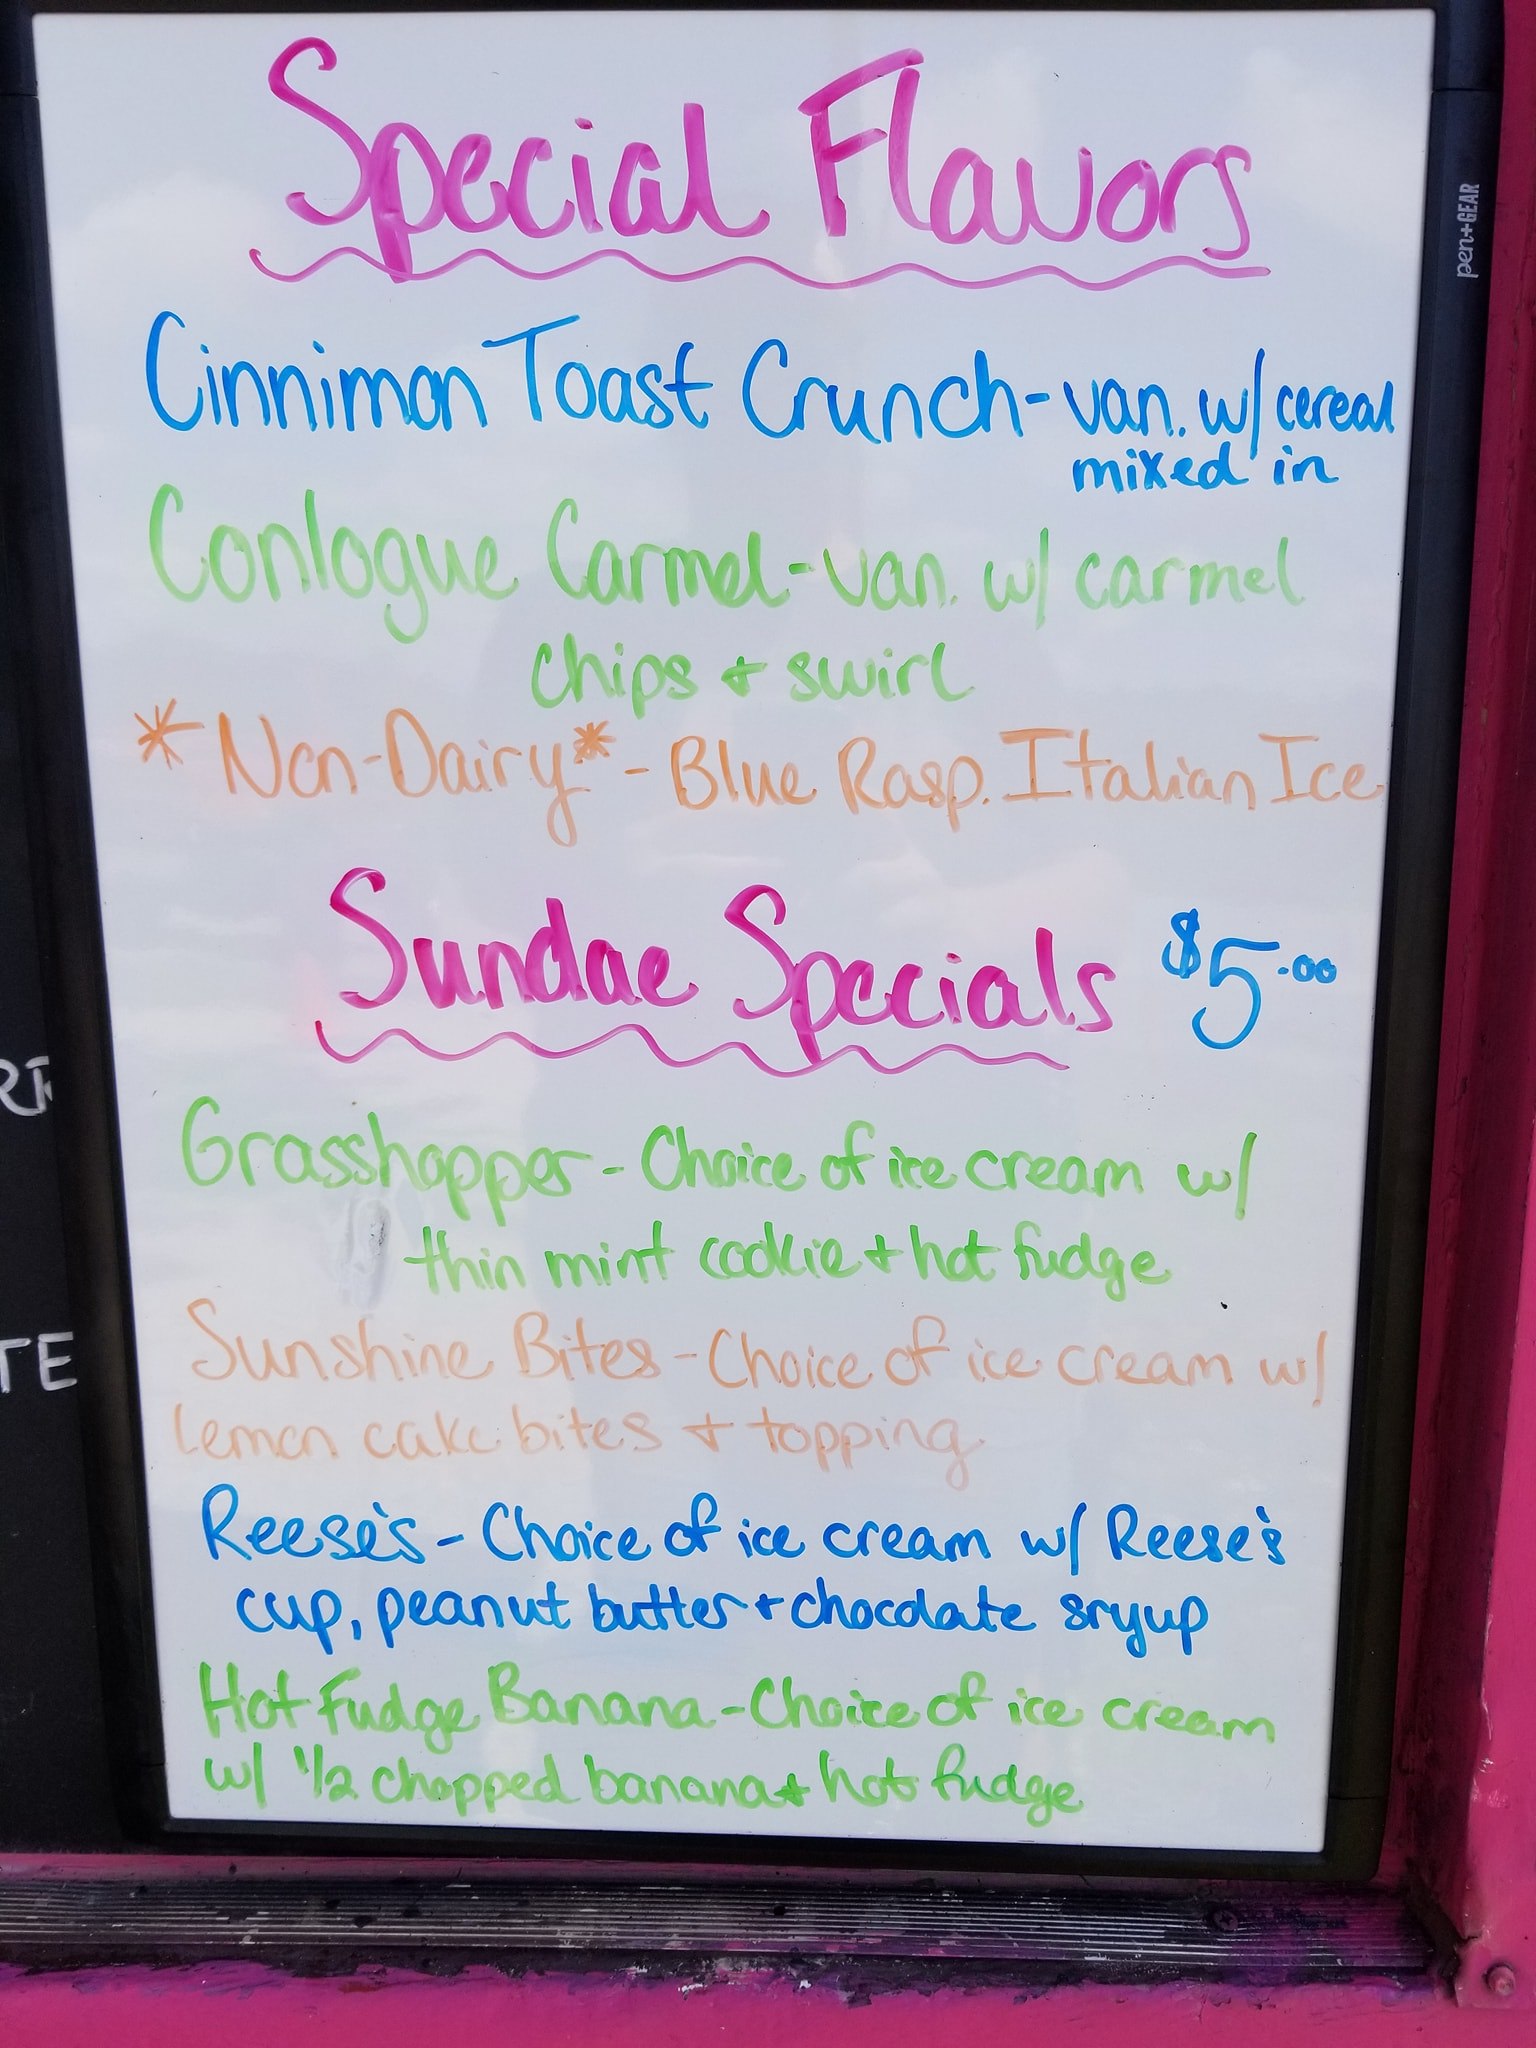 Special Flavors
pen+GEAR
Cinnimon Toast Crunch - van. w/ cereal
mixed in
Conlogue Carmel - van. w/ carmel
chips + swirl
*Non-Dairy* - Blue Rasp. Italian Ice
Sundae Specials $5.00
Grasshopper - Choice of ice cream w/
thin mint cookie + hot fudge
Sunshine Bites - Choice of ice cream w/
lemon cake bites + topping
Reese's - Choice of ice cream w/ Reese's
cup, peanut butter + chocolate sryup
Hot Fudge Banana - Choice of ice cream
w/ 1/2 chopped banana + hot fudge
RR
TE